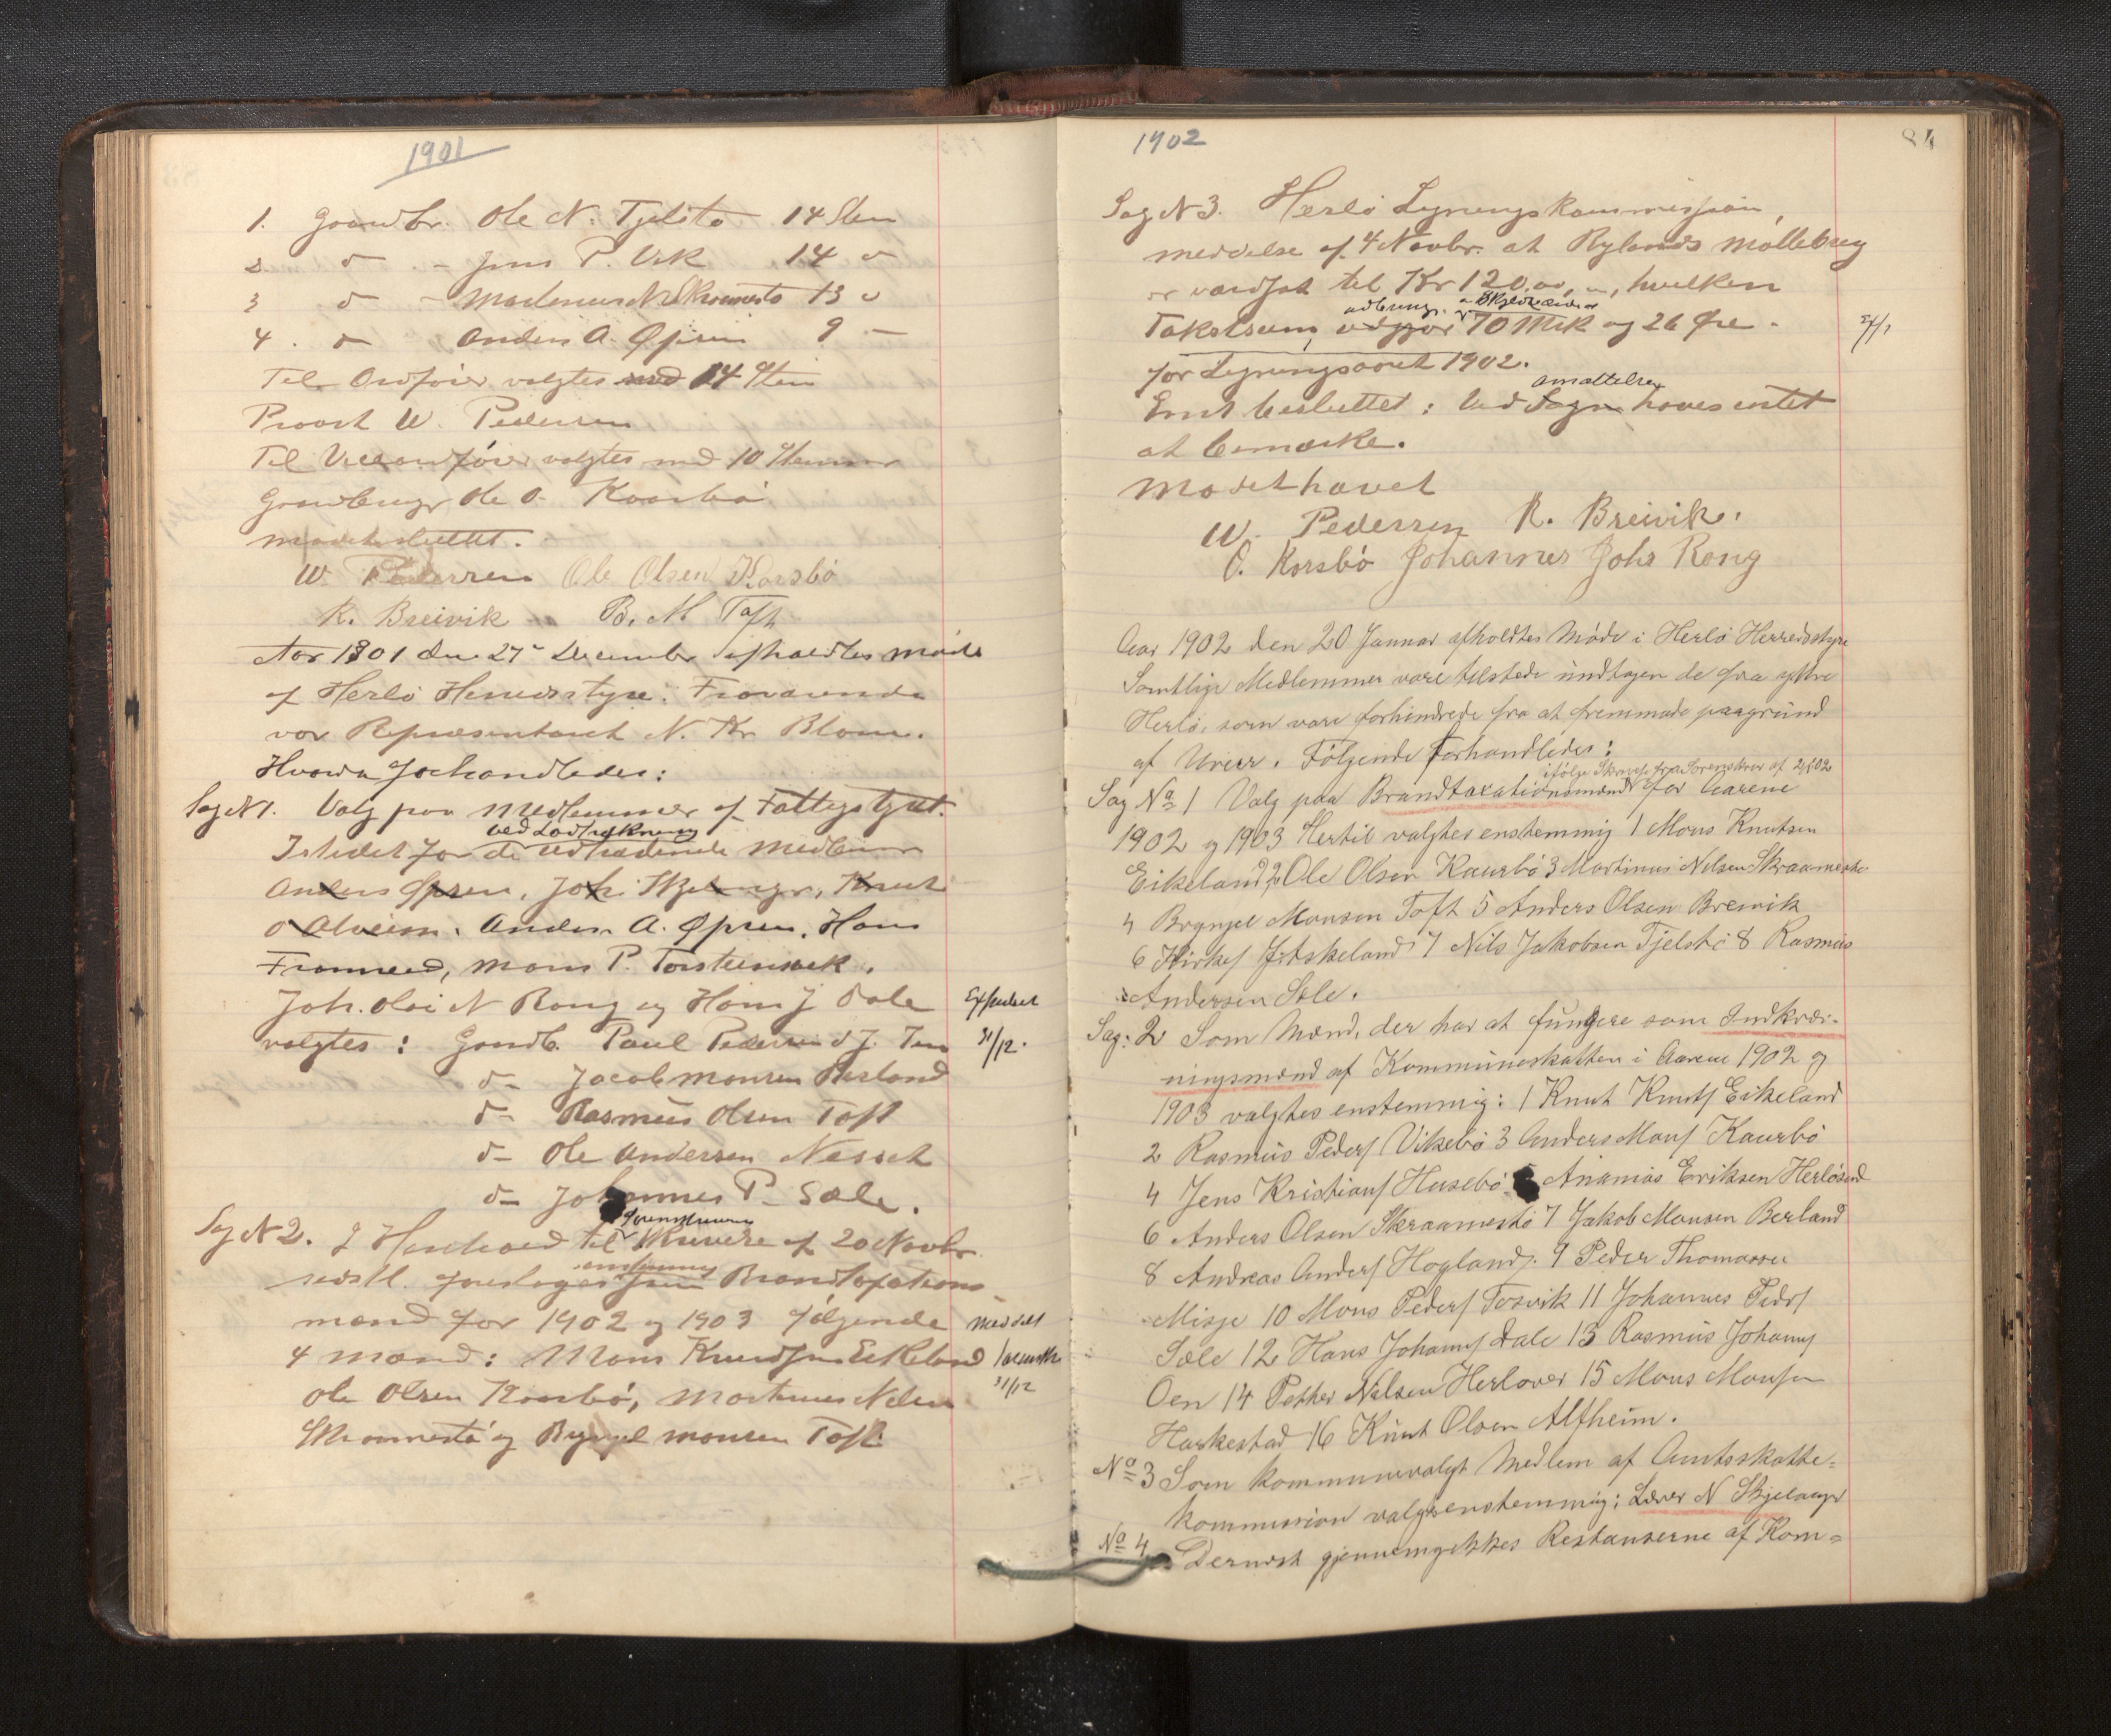 1901
1. Gaardbr. Ole N. Tjelstø 14 Stem
2. d - Jens P. Vik 14 d
3 d - Martinus N. Skraamestø 13 d
4. d Anders A. Øpsen 9 -
Til Ordfører valgtes med 14 Stem
Provst W. Pedersen
Til Viceordfører valgtes med 10 Stemmer
Gaardbruger Ole O. Kaarsbø
Mødet sluttet.
W. Pedersen Ole Olsen Korsbø
R. Breivik B. M. Toft
Aar 1901 den 27de December afholdtes møde
af Herlø Herredsstyre. Fraværende
var Repræsentant N. Kr. Blom.
Hvorda forhandledes:
Sag N 1. Valg paa Medlemmer af Fattigstyret.
ved Lodtrækning
Istedet for de udtrædende Medlem
Anders Øpsen, Joh. Skjelanger, Knut
O Alveim. Anders A. Øpsen, Hans
Frammed, Mons P. Torsteinsvik.
Joh. Olai N Rong og Hans J Dale
Expederet
31/12.
valgtes: Gaardb. Paul Pedersen
d- Jacob Monsen Berland
d- Rasmus Olsen Toft
d- Ole Andersen Nesset
d- Johannes P. Sæle.
Sorenskriver
Sag N 2. I Henhold til Skrivelse af 20 Novbr.
enstemmig
sidstl. foreslages som Brandtaxations
mænd for 1902 og 1903 følgende
Meddelt
4 mænd: Mons Knudsen Eikeland
31/12
Ole Olsen Kaarsbø, Martinus Nelsen
Skraamestø og Brynjel Monsen Toft
1902
84
Sag N 3. Herlø Ligningskommission,
meddelse af 4 Novbr. at Rylands Møllebrug
er værdsat til Kr 120,00, hvilken
udbring.
Takstsum, udgjør 70 Mrk og 26 Øre.
for Ligningsaaret 1902.
ansættelsen
Enst besluttet: Ved Sagen haves intet
at bemærke.
Mødet hævet
W. Pedersen R. Breivik.
O. Korsbø Johannes Johs Rong
Aar 1902 den 20 Januar afholdtes Møde i Herlø Herredsstyre
Samtlige Medlemmer vare tilstede undtagen de fra yttre
Herlø, som vare forhindrede fra at fremmøde paagrund
af Uveir. Følgende Forhandledes:
ifølge Skrivelse fra Sorenskriver af 2/1 1902
Sag No 1 Valg paa Brandtaxationsmænd for Aarene
1902 og 1903 Hertil valgtes enstemmig 1 Mons Knutsen
Eikeland 2 Ole Olsen Kaursbø 3 Martinus Nelsen Skraamestø
4 Brynjel Monsen Toft 5 Anders Olsen Breivik
6 Eskeland 7 Nils Jakobsen Tjelstø 8 Rasmus
Andersen Sæle.
Sag: 2 Som Mænd, der har at fungere som Indkræv-
ningsmænd af Kommuneskatten i Aarene 1902 og
1903 valgtes enstemmig: 1 Knut Knuts Eikeland
2 Rasmus Peders Vikebø 3 Anders Mons Kaursbø
4 Jens Kristians Husebø 5 Ananias Eriksen Herløsund
6 Anders Olsen Skraamestø 7 Jakob Monsen Berland
8 Andreas Anders Hogland. 9 Peder Thomassen
Misje 10 Mons Peders Tosvik 11 Johannes Peders
Sæle 12 Hans Johans Dale 13 Rasmus Johans
Oen 14 Petter Nilsen Herløver 15 Mons Monsen
Harkestad 16 Knut Olsen Alfheim.
No 3 Som kommunevalgt Medlem af Amtsskatte-
kommission valgtes enstemmig: Lærer N Skjelanger
No 4 Dernæst gjennemgikkes Restanserne af Kom-